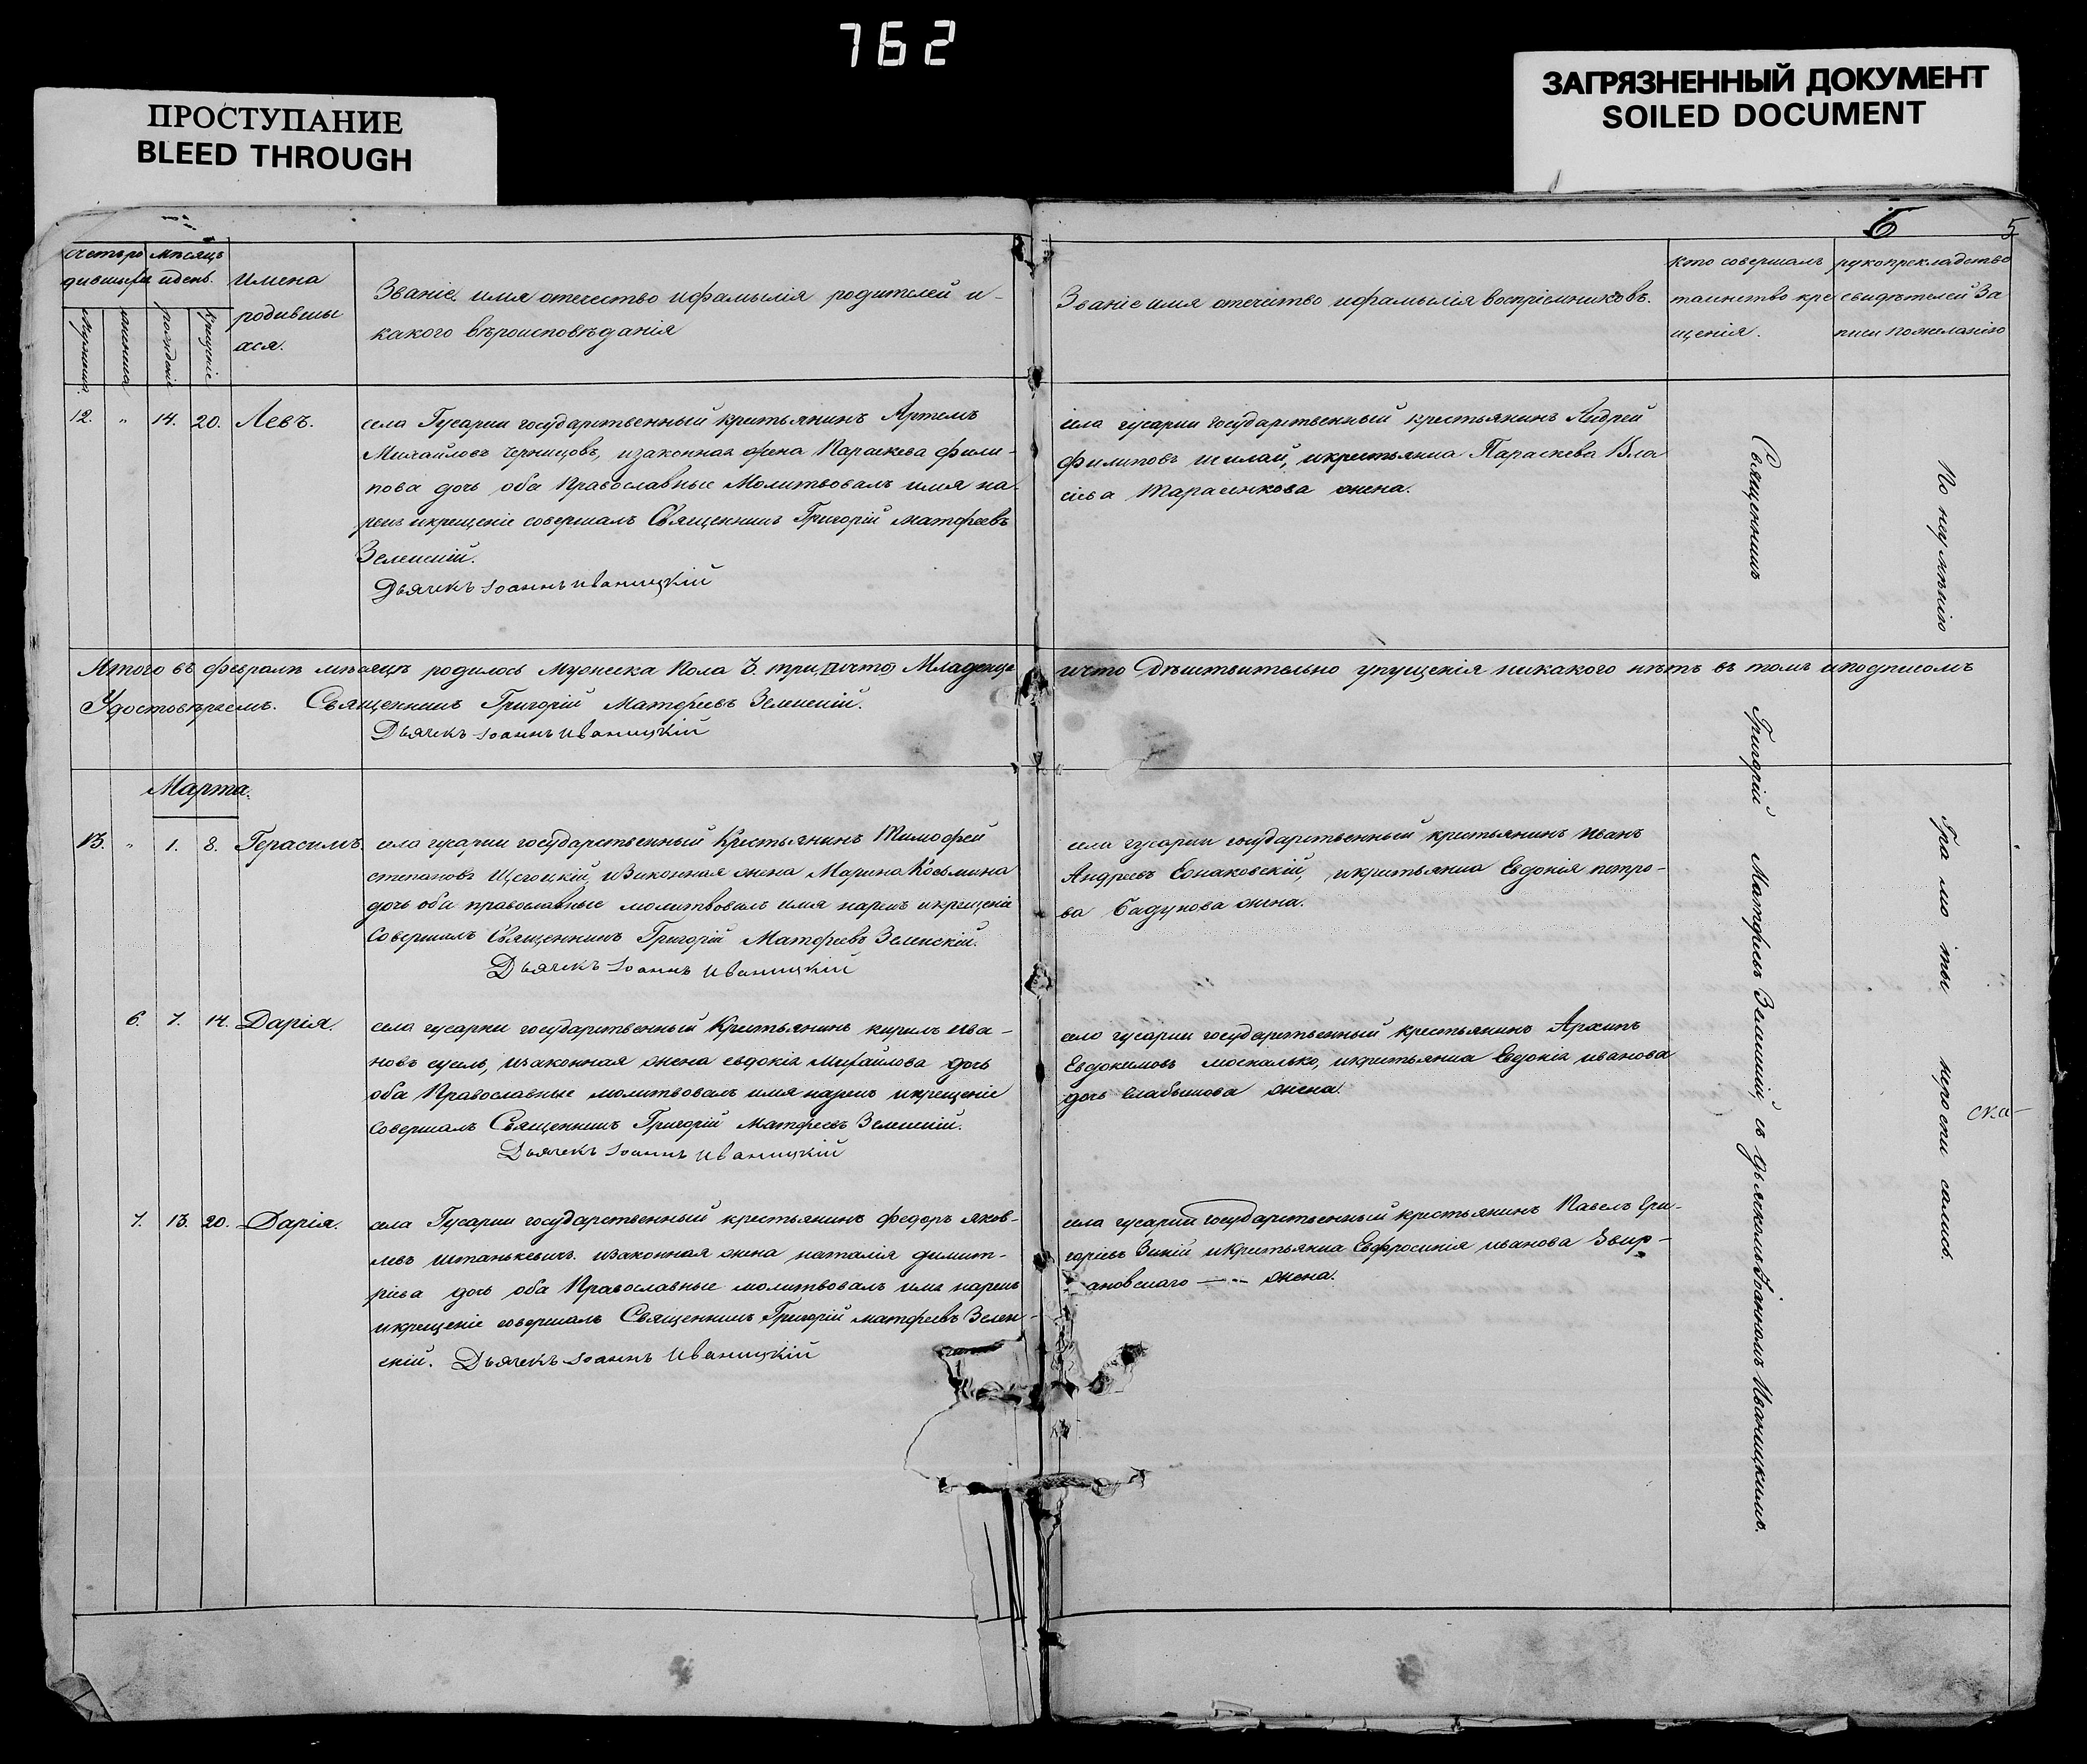 762
ПРОСТУПАНИЕ
BLEED THROUGH
ЗАГРЯЗНЕННЫЙ ДОКУМЕНТ
SOILED DOCUMENT
6
5
Счетъ ро
дившихся
мѣсяцъ
и день.
мужеска.
женска
рожденіе
крещеніе
Имена
родивши
хся.
Званіе, имя отечество ифамылія родителей и-
какого вѣроисповѣданія
Званіе имя отечество ифамылія воспріемниковъ.
Кто совершалъ
таинство кре
щенія.
рукоприкладство
свидѣтелей За
писи пожеланію
12. " 14. 20. Левъ.
села Гусарки государственный крестьянинъ Артемъ
Михайловъ Черницовъ, изаконная жена Параскева фили-
пова дочь оба Православные Молитвовалъ имя на-
рекъ икрещеніе совершалъ Священникъ Григорій матфеевъ
Зеленскій.
Дьячекъ Іоаннъ Иваницкій
села гусарки государственный крестьянинъ Андрей
Филиповъ шилай, икрестьянка Параскева Вла
сіева Тарасенкова жена.
Итого въ февралѣ мѣсяцѣ родилось Мужеска Пола 3. три, Младенца
ичто Дѣйствительно упущенія никакого нѣтъ въ томъ иподписомъ
Удостовѣряемъ. Священникъ Григорій Матфеевъ Зеленскій.
Дьячекъ Іоаннъ Иваницкій
Марта.
13. " 1. 8. Герасимъ
села гусарки государственный Крестьянинъ Тимофей
степановъ изаконная жена Марина Козьмина
дочь оба православные молитвовалъ имя нарекъ икрещеніе
Совершалъ Священникъ Григорій Матфеевъ Зеленскій.
Дьячекъ Іоаннъ Иваницкій
села гусарки государственный крестьянинъ иванъ
Андреевъ икрестьянка Евдокія петро-
ва жена.
6. 7. 14. Дарія.
села гусарки государственный Крестьянинъ кирилъ ива-
новъ сусль, изаконная жена евдокія михайлова дочь
оба Православные молитвовалъ имя нарекъ икрещеніе
Совершалъ Священникъ Григорій Матфеевъ Зеленскій.
Дьячекъ Іоаннъ Иваницкій
село гусарки государственный крестьянинъ Архипъ
Евдокимовъ москалько, икрестьянка Евдокія иванова
дочь слабышова жена.
7. 13. 20. Дарія.
села Гусарки государственный крестьянинъ федоръ яков-
левъ штанькевичъ. изаконная жена наталія димит-
ріева дочь оба Православные молитвовалъ имя нарекъ
икрещеніе совершалъ Священникъ Григорій матфеевъ Зелен-
скій. Дьячекъ Іоаннъ Иваницкій
села гусарки государственный крестьянинъ Павелъ Гри-
горіевъ икрестьянка Ефросинія иванова Звир-
ановскаго жена.
Священникъ Григорій Матфеевъ Зеленскій, съ дьячкомъ Іоанномъ Иваницкимъ.
По неумѣнію Гра мо ты